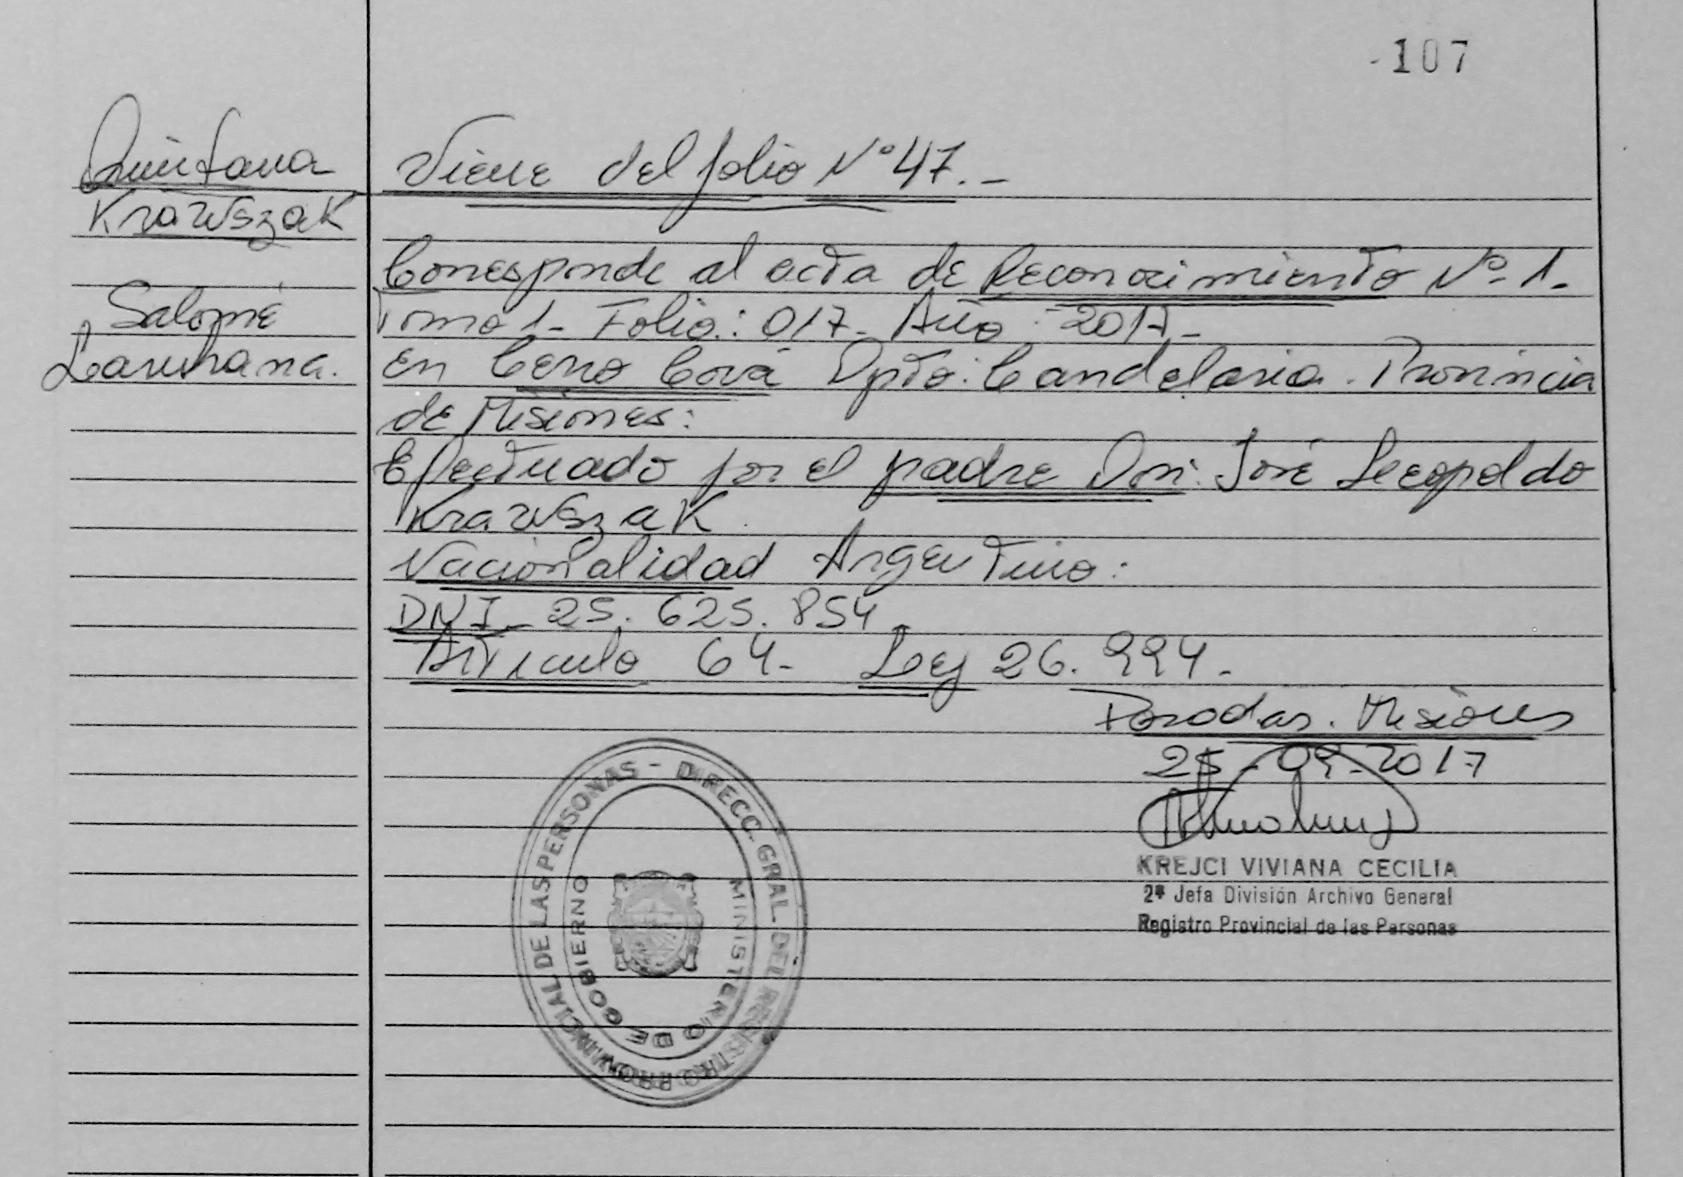 107
Quintana
Krawszak
Salomé
Viene del folio N° 47.-
Corresponde al acta de Reconocimiento N° 1-
Tomo 1- Folio: 017- Año: 2017-
en Cerro Corá Dpto: Candelaria. Provincia
de Misiones:
Efectuado por el padre Don: José Leopoldo
Krawszak.
Nacionalidad Argentino:
DNI- 25.625.854
Artículo 64- Ley 26.994-
Posadas. Misiones
25-09-2017
KREJCI VIVIANA CECILIA
2ª Jefa División Archivo General
Registro Provincial de las Personas
DIRECC. GRAL. DEL REGISTRO PROVINCIAL DE LAS PERSONAS -
MINISTERIO DE GOBIERNO